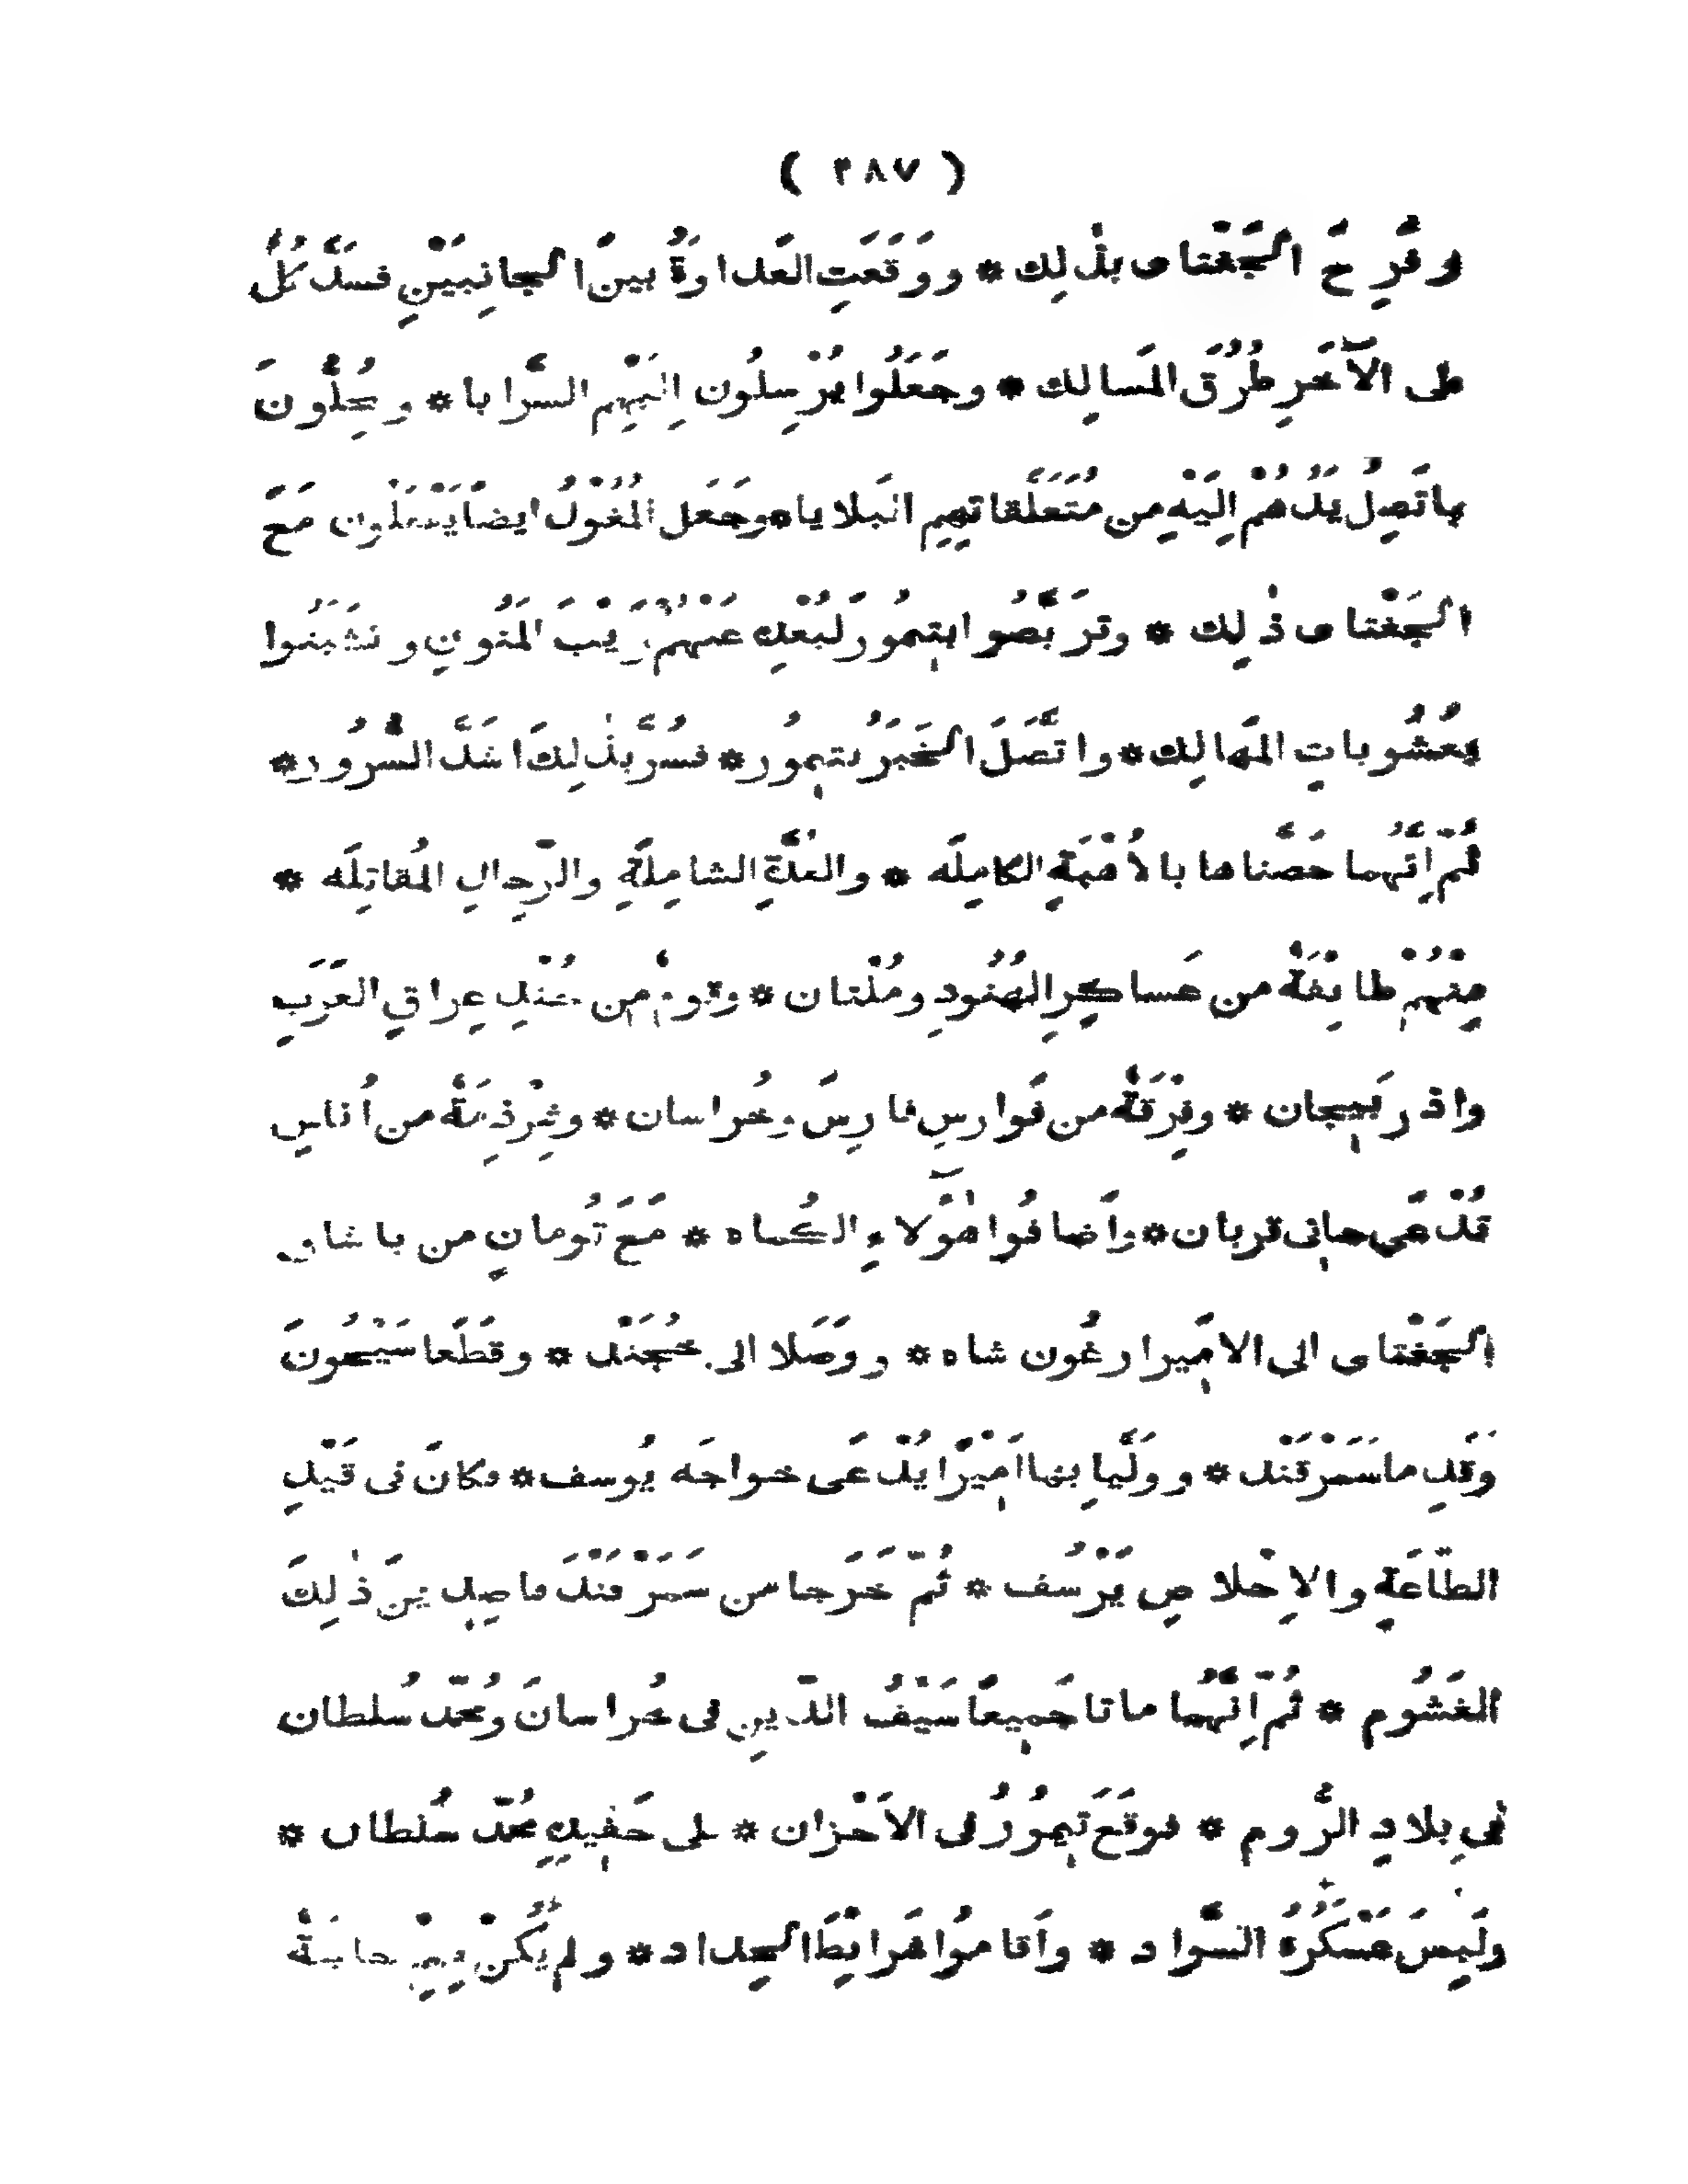 ( ٣٨٧ )
وفَرِحَ الجَغَتاى بذٰلِك * ووَقَعَتِ العَداوَةُ بينَ الجانِبَيْنِ فسَدَّ كُلٌّ
على الآخَرِ طُرُقَ المَسالِك * وجَعَلُوا يُرْسِلُون اِلَيْهِم السَّرايا * ويُحِلُّونَ
بما تَصِلُ يَدُهُمْ اِلَيْه من مُتَعَلِّقاتِهِم البَلايا * وجَعَل المُغُولُ ايضاً يَفْعَلُون مَعَ
الجَغَتاى ذٰلِك * وتَرَبَّصُوا بتِيمُورَ لبُعْدِهِ عَنْهُمْ رَيْبَ المَنُونِ وتَشَبَّثُوا
بعُشُوباتِ المَهالِك * واتَّصَلَ الخَبَرُ بتِيمُور * فسُرَّ بذٰلِكَ اشَدَّ السُّرُور *
ثُمّ اِنَّهُما حَصَّناها بالاُهْبَةِ الكامِلَه * والعُدَّةِ الشامِلَةِ والرِّجالِ المُقاتِلَه *
مِنْهُمْ طايِفَةٌ من عَساكِرِ الهُنُودِ ومُلْتان * وقَومٌ من جُنْدِ عِراقِ العَرَبِ
واذربِيجان * وفِرْقَةٌ من فَوارِسِ فارِسَ وخُراسان * وشِرْذِمَةٌ من اُناسٍ
تُدْعَى جانى قربان * واَضافُوا هٰؤُلاءِ الكُماه * مَعَ تُومانٍ من باشاى
الجَغَتاى الى الامِيرِ ارغُون شاه * ووَصَلا الى خُجَنْد * وقَطَعا سَيْحُونَ
وقَدِما سَمَرْقَنْد * ووَلَّيا بها اَمِيْراً يُدْعَى خواجَه يُوسف * فكانَ فى قَيْدِ
الطّاعَةِ والاِخلاصِ يَرْسُف * ثُمّ خَرَجا من سَمَرْقَنْدَ قاصِدِينَ ذٰلِكَ
الغَشُوم * ثُمّ اِنَّهُما ماتا جَمِيعاً سَيْفُ الدّينِ فى خُراسانَ ومُحمّد سُلطان
فى بِلادِ الرُّوم * فوقَعَ تِيمُورُ فى الاَحْزان * على حَفِيدِهِ مُحمّد سُلطان *
ولَبِسَ عَسْكَرُهُ السَّواد * واَقامُوا شَرايِطَ الحِداد * ولم يَكُنْ بِهِ حاجَةٌ